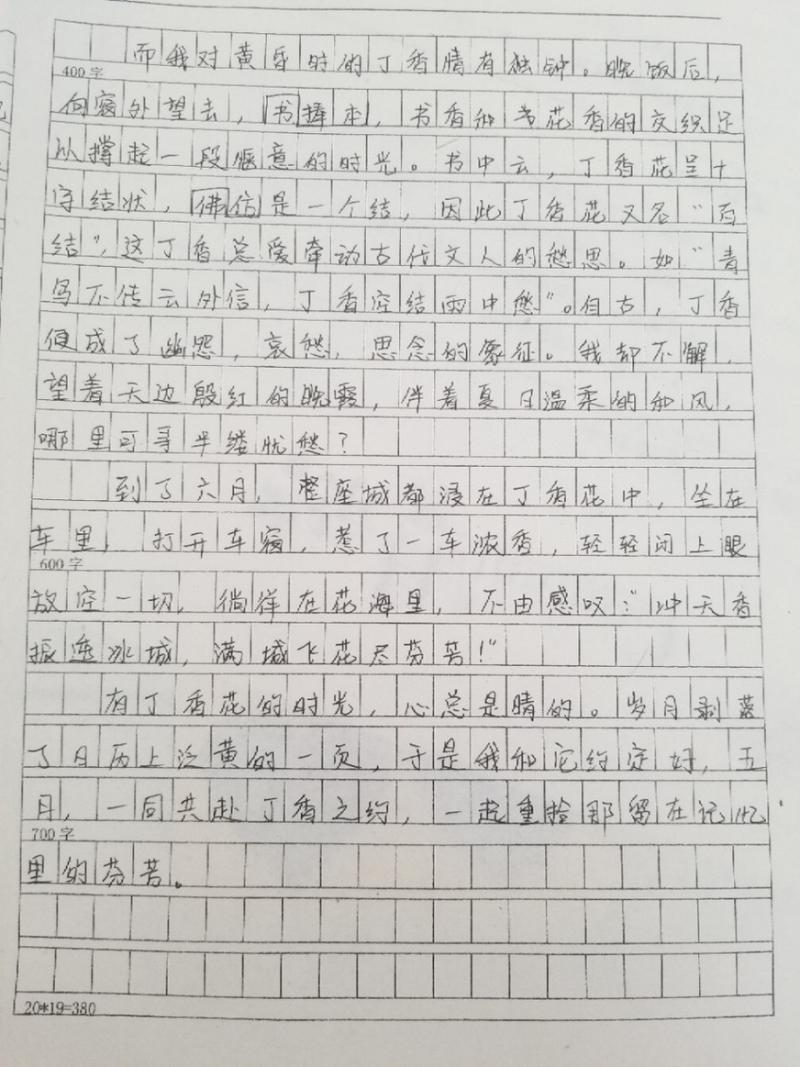 而我对黄昏时的丁香情有独钟。晚饭后，
400字
向窗外望去，书捧本，书香和花香的交织足
以撑起一段惬意的时光。书中云，丁香花呈十
字结状，佛信是一个结，因此丁香花又名“百
结”，这丁香总爱牵动古代文人的愁思。如“青
鸟不传云外信，丁香空结雨中愁”。自古，丁香
便成了幽怨，哀愁，思念的象征。我却不解，
望着天边殷红的晚霞，伴着夏日温柔的和风，
哪里可寻半缕忧愁？
到了六月，整座城都浸在丁香花中，坐在
车里，打开车窗，惹了一车浓香，轻轻闭上眼
600字
放空一切，徜徉在花海里，不由感叹：“冲天香
振透冰城，满城飞花尽芬芳！”
有丁香花的时光，心总是晴的。岁月剥落
了日历上泛黄的一页，于是我和它约定好，五
月，一同共赴丁香之约，一起重拾那留在记忆
700字
里的芬芳。
20*19=380